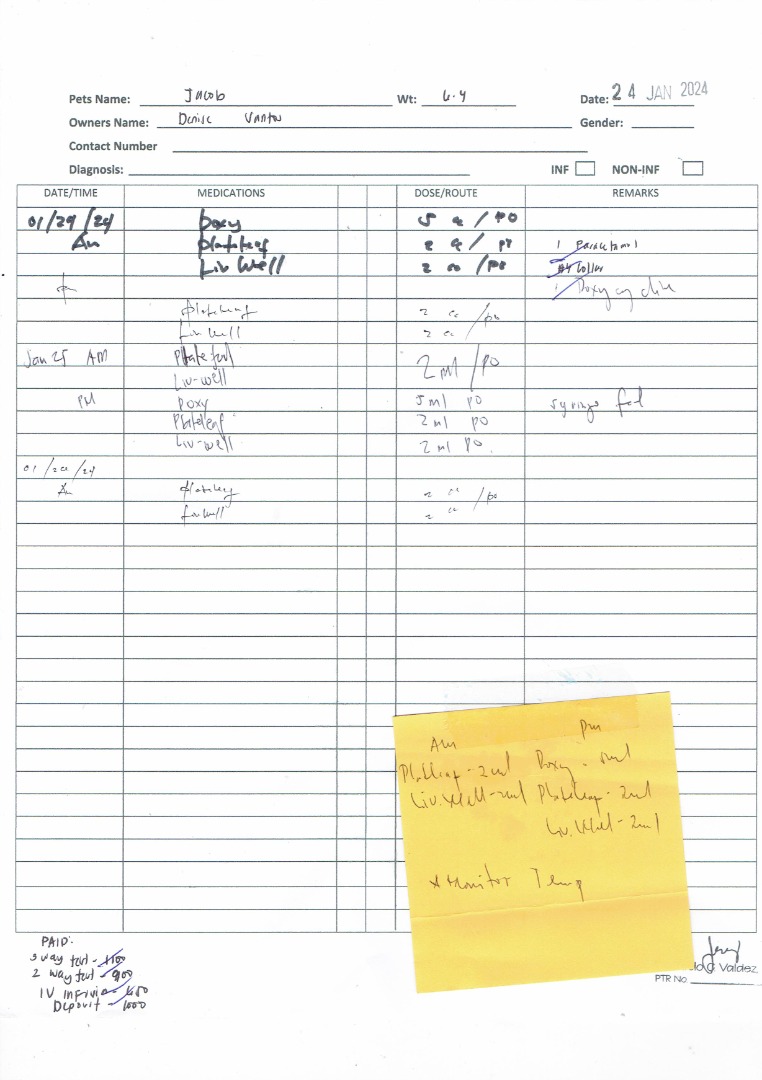 Pets Name: Jacob Wt: 6.4 Date: 24 JAN 2024
Owners Name: Denise Gender:
Contact Number
Diagnosis: INF NON-INF
DATE/TIME MEDICATIONS DOSE/ROUTE REMARKS
01/24/24 Doxy 5 cc / PO
Am Plateleaf 2 cc / PO 1 Paracetamol
Liv Well 2 cc / PO #4 Collar
1 Doxycycline
Plateleaf 2 cc / PO
Liv Well 2 cc
Jan 25 AM 2 ml / PO
Liv-well
PM Doxy 5 ml PO syringe
Plateleaf 2 ml PO
Liv-well 2 ml PO.
Am Plateleaf 2 cc / PO
Liv Well 2 cc
Am Pm
Plateleaf - 2ml Doxy - 5ml
Liv.Well - 2ml Plateleaf - 2ml
Liv.Well - 2ml
* Monitor Temp
PAID:
3 way test - 1100
2 way test - 900
IV
Deposit - 1000
Valdez
PTR No